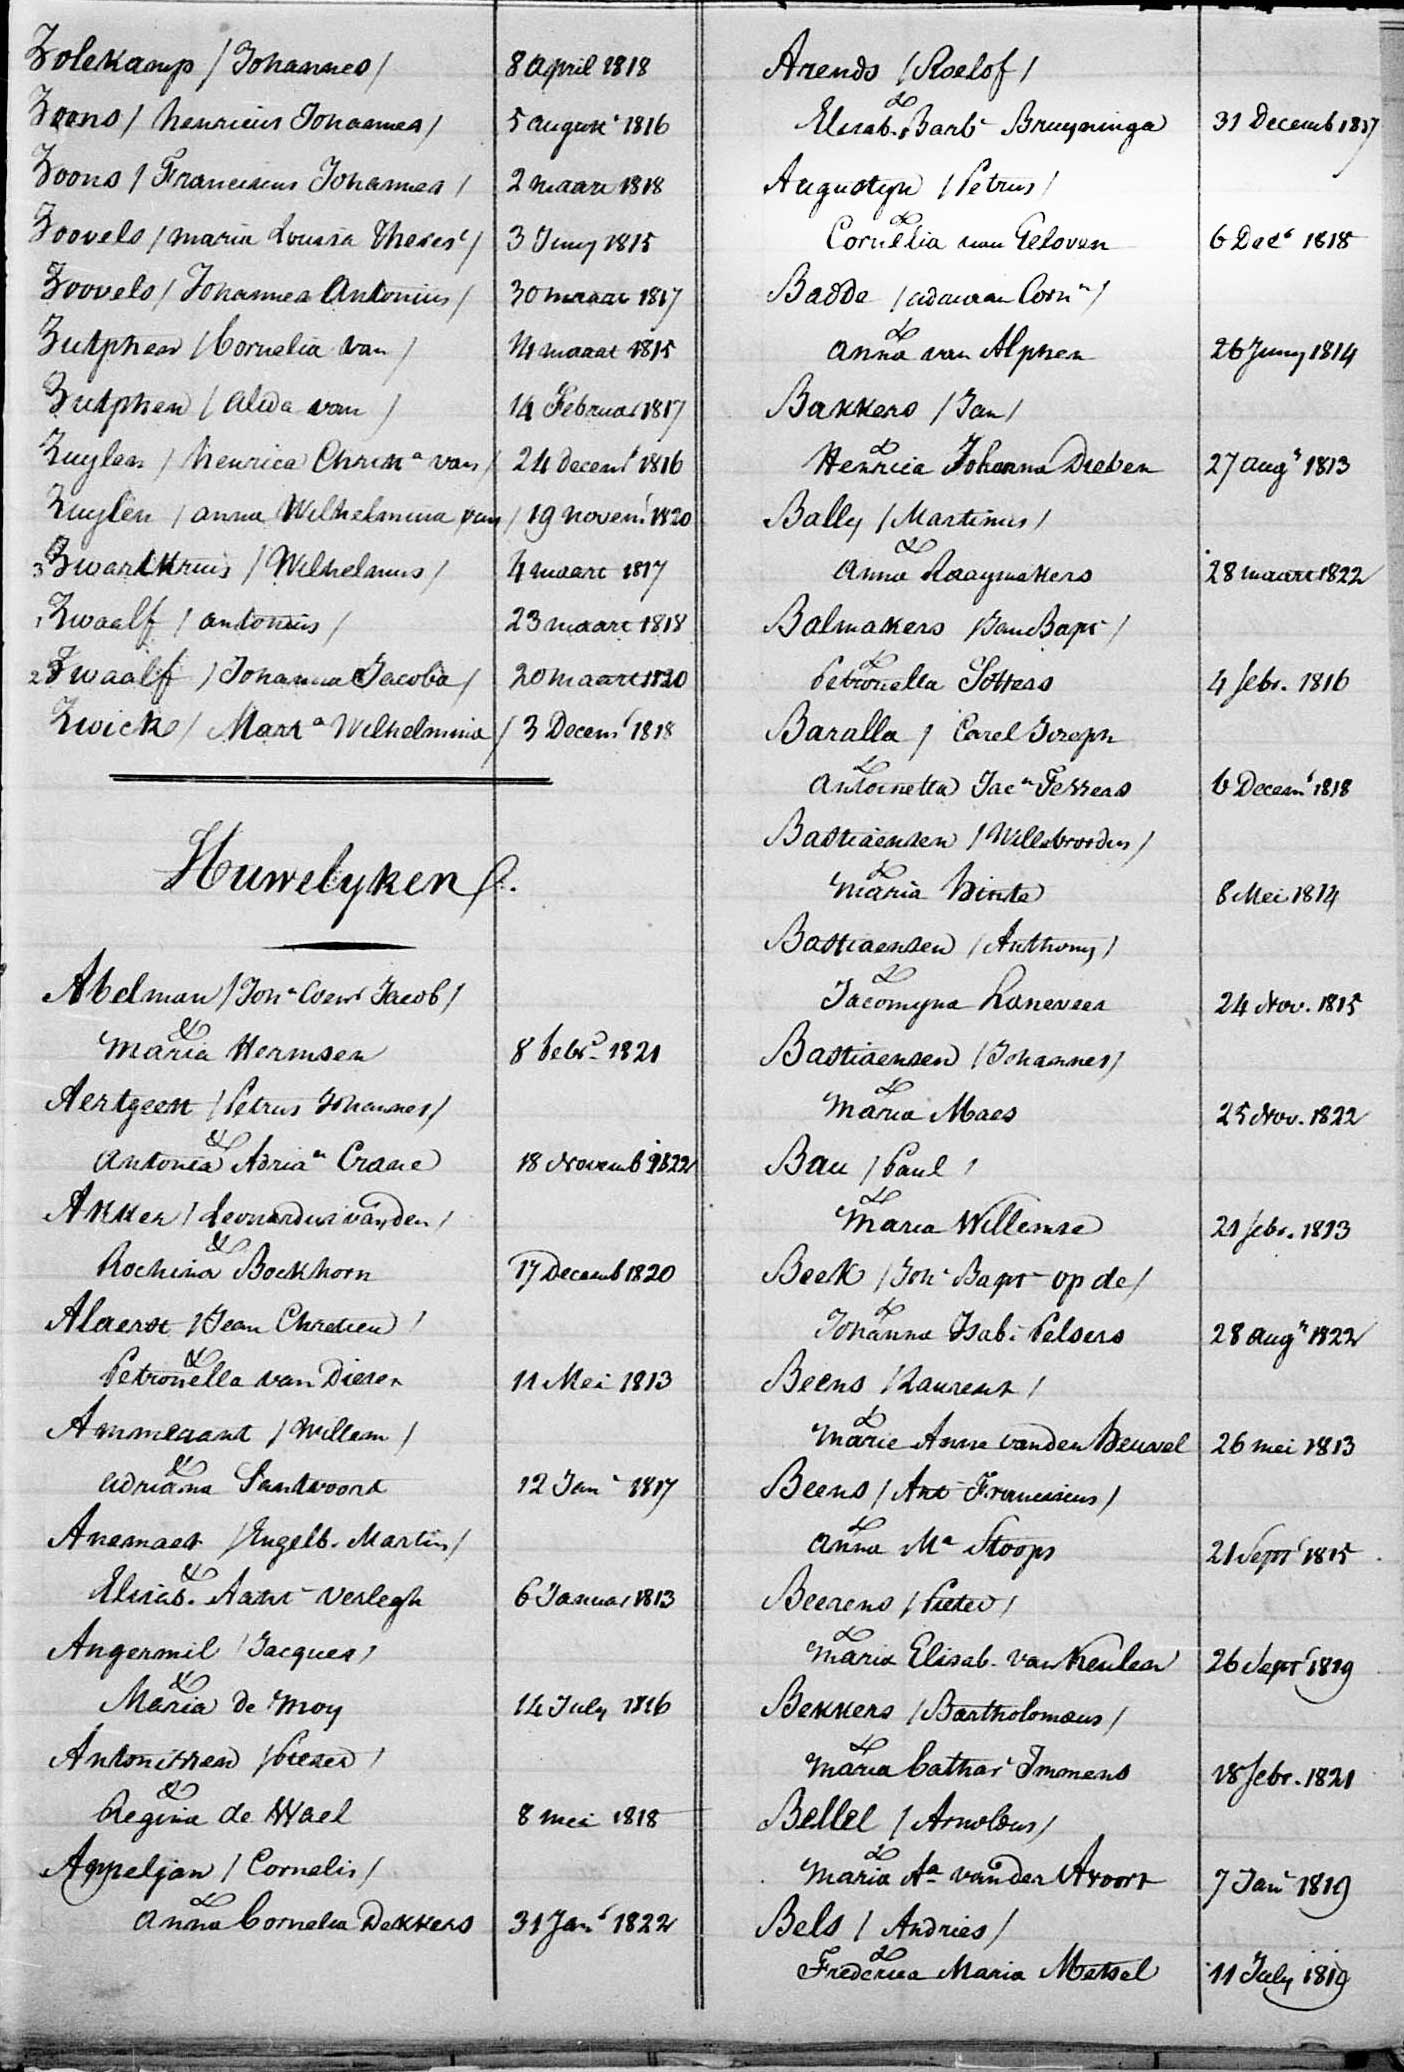 Zolekamp / Johannes / 8 April 1818
Zoons / Henricus Johannes / 5 august 1816
Zoons / Franciscus Johannes / 2 maart 1818
Zoovels / maria Louisa Theres / 3 Juny 1815
Zoovels / Johannes Antonius / 30 maart 1817
Zutphen / Cornelia van / 14 maart 1815
Zutphen / Alida van / 14 Februar 1817
Zuylen / Henrica Christa van / 24 decemr 1816
Zuylen / anna Wilhelmina van / 19 novemr 1820
3 Zwartkruis / Wilhelmus / 4 maart 1817
1 Zwaalf / antonius / 23 maart 1818
2 Zwaalf / Johanna Jacoba / 20 maart 1820
Zwick / Marta Wilhelmina / 3 Decemr 1818
Huwelyken
Abelman / Johs Coenr Jacob /
&
Maria Hermsen 8 febr. 1821
Aertgeest / Petrus Johannes /
&
Antonia Adriana Crane 18 Novemb 1822
Akker / Leonardus van den /
&
Rochina Bockhorn 17 Decemb 1820
Alaerst / Jean Chretien /
&
Petronella van Dieren 11 Mei 1813
Ammeraant / Willem /
&
Adriana Santvoort 12 Jan 1817
Anemaet / Engelb. Martin /
&
Elisab. Aant Verlegh 6 Januar 1813
Angermil / Jacques /
&
Maria de Moy 14 July 1816
Antonissen / Pieter /
&
Regina de Wael 8 mei 1818
Appeljan / Cornelis /
&
Anna Cornelia Dekkers 31 Janr 1822
Arends / Roelof /
&
Elisab. Barb. Bruyninga 31 Decemb 1817
Augustyn / Petrus /
&
Cornelia van Geloven 6 Decr 1818
Badde / adriaan Corns /
&
Anna van Alphen 26 Juny 1814
Bakkers / Jan /
&
Henricia Johanna Dieben 27 augs 1813
Bally / Martinus /
&
Anna Raaymakers 28 maart 1822
Balmakers / Jan Bapt /
&
Petronella Sotters 4 febr. 1816
Baralla / Carel Joseph
&
Antoinetta Jaca Ferrers 6 Decemr 1818
Bastiaensen / Willebrordus /
&
Maria Hinte 8 Mei 1814
Bastiaensen / Anthony /
&
Jacomyna Laneveer 24 Nov. 1815
Bastiaensen / Johannes /
&
Maria Maes 25 Nov. 1822
Bau / Paul /
&
Maria Willemse 21 febr. 1813
Beek / Joh Bapt op de /
&
Johanna Isab. Pelsers 28 augs 1822
Beens / Laurent /
&
Marie Anne vanden Heuvel 26 mei 1813
Beens / Ant Franciscus /
&
Anna Ma Stoops 21 Septr 1815
Beerens / Pieter /
&
Maria Elisab. van Keulen 26 Septr 1819
Bekkers / Bartholomeus /
&
Maria Cathar Immens 18 febr. 1821
Bellel / Arnoldus /
&
Maria Aa vander Avoort 7 Jan 1819
Bels / Andries /
&
Frederica Maria Metsel 11 July 1819